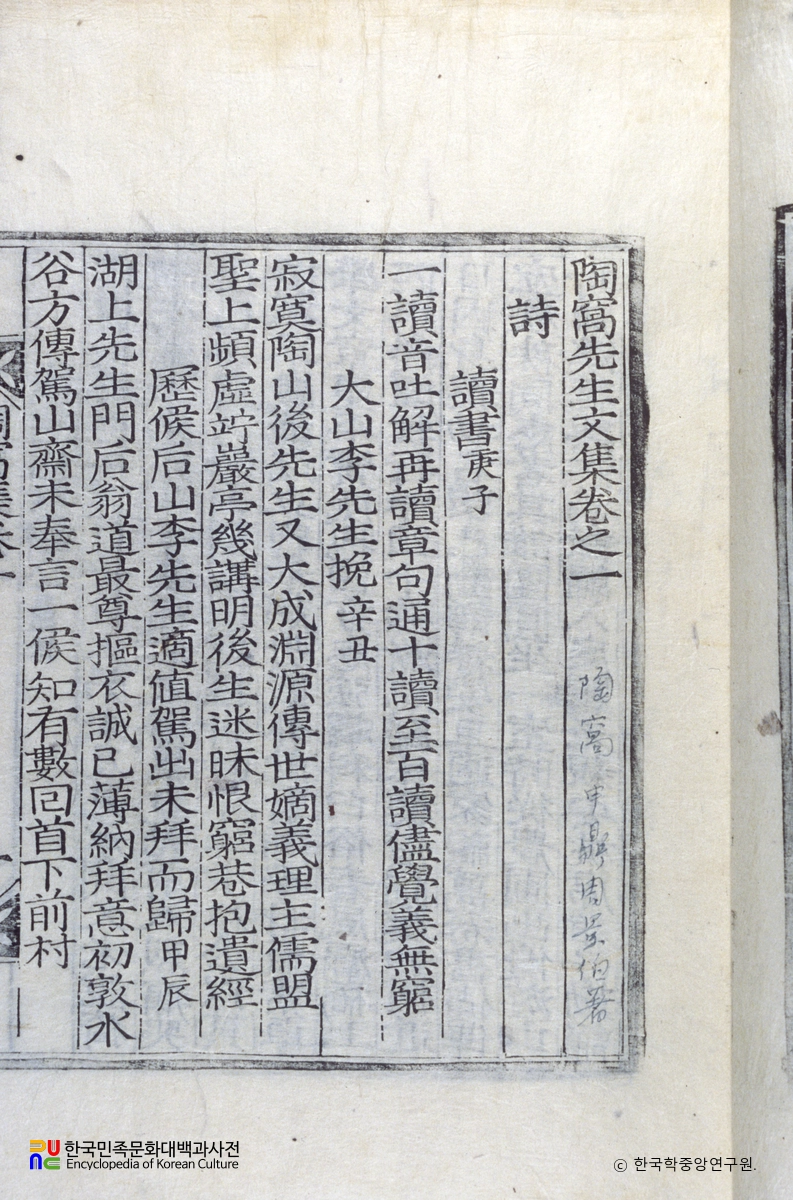 陶窩先生文集卷之一
陶窩申鼎周景伯著
詩
讀書 庚子
一讀音吐解再讀章句通十讀至百讀儘覺義無窮
大山李先生挽 辛丑
寂寞陶山後先生又大成淵源傳世嫡義理主儒盟
聖上頻虛竚巖亭幾講明後生迷昧恨窮巷抱遺經
歷候后山李先生適値駕出未拜而歸 甲辰
湖上先生門后翁道最尊摳衣誠已薄納拜意初敦水
谷方傳駕山齋未奉言一候知有數回首下前村
한국민족문화대백과사전
Encyclopedia of Korean Culture
ⓒ 한국학중앙연구원.